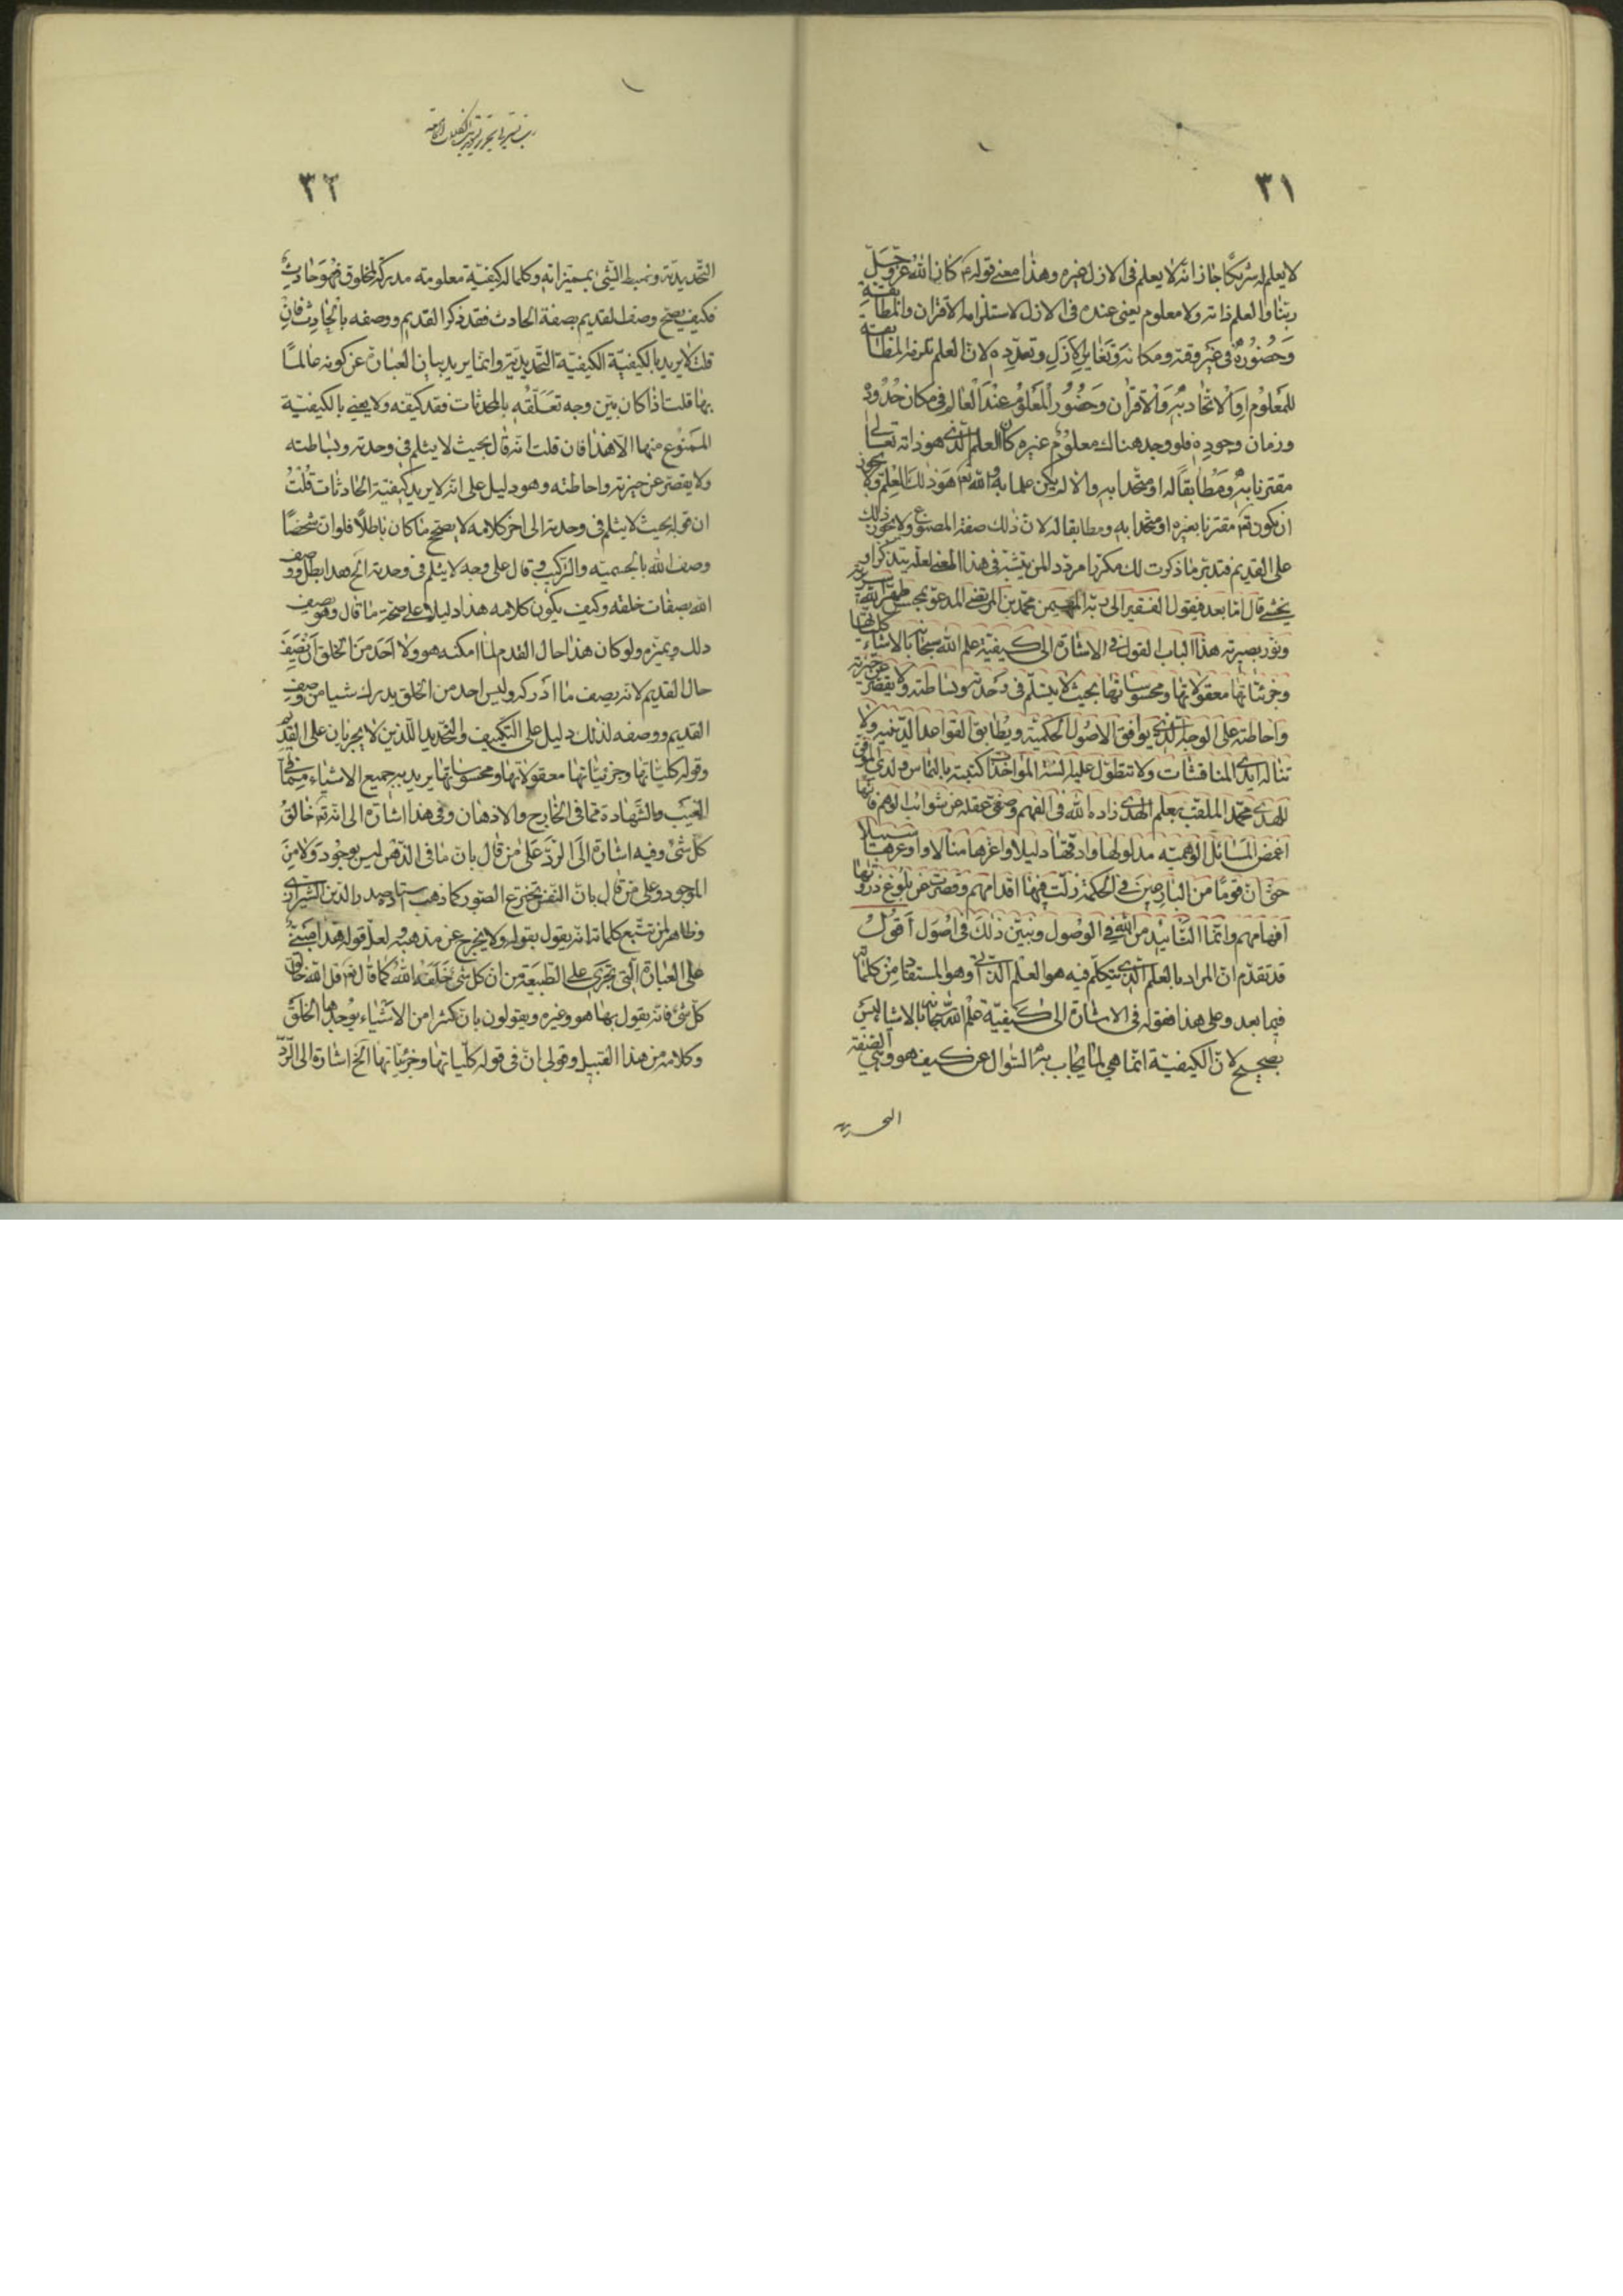 ٣١
لا يعلم له شريكا جاز انه لا يعلم فى الازل غيره وهذا معنى قوله ع كان الله عز وجل
ربنا والعلم ذاته ولا معلوم يعنى عنده فى الازل لاستلزامه الاقتران والمطابقة
وحضوره فى غير وقته ومكانه وتغاير الازل وتعدده لان العلم تلزمه المطابقة
للمعلوم او الاتحاد به والاقتران وحضور المعلوم عند العالم فى مكان حدوده
وزمان وجوده فلو وجد هناك معلوم غيره كان العلم الذى هو ذاته تعالى
مقترنا به ومطابقا له او متحدا به والا لم يكن علما به والله تع هو ذلك العلم ولا يجوز
ان يكون تع مقترنا بغيره او متحدا به ومطابقا له لان ذلك صفة المصنوع ولا يجوز ذلك
على القديم فتدبر ما ذكرت لك مكررا مرددا لمن يتثبت فى هذا المعنى لعله يتذكر او
يخشى قال اما بعد فيقول الفقير الى ربه المهيمن محمد بن المرتضى المدعو بمحسن
ونور بصيرته هذا لباب القول فى الاشارة الى كيفية علم الله سبحانه بالاشياء كلياتها
وجزئياتها معقولاتها ومحسوساتها بحيث لا ينثلم فى وحدته وبساطته ولا يقصر عن خبرته
واحاطته على الوجه الذى يوافق الاصول الحكمية ويطابق القواعد الدينية ولا
تناله ايدى المناقشات ولا تتطول عليه السنة المؤاخذات كتبته بالتماس ولدى الموفق
للهدى محمد الملقب بعلم الهدى زاده الله فى الفهم وصفى عقله عن شوائب الوهم فانها
اغمض المسائل الوهمية مدلولها وادقها دليلا واعزها منالا واوعرها سبيلا
حتى ان قوما من البارعين فى الحكمة زلت فيها اقدامهم وقصرت عن بلوغ ذروتها
افهامهم وانما التأييد من الله فى الوصول ونبين ذلك فى اصول اقول
قد تقدم ان المراد بالعلم الذى يتكلم فيه هو العلم الذاتى وهو المستفاد من كلماته
فيما بعد وعلى هذا فقوله فى الاشارة الى كيفية علم الله سبحانه بالاشيا ليس
بصحيح لان الكيفية انما هى لما يجاب به السؤال عن كيف هو وهى
٣٢
التحديدية وتميط الشئ بمميزاته وكلما له كيفية معلومة مدركة لمخلوق فهو حادث
فكيف يصح وصف القديم بصفة الحادث فقد ذكر القديم ووصفه بالحادث فان
قلت لا يريد بالكيفية الكيفية التحديدية وانما يريد بيان العبارة عن كونه عالما
بها قلت اذا كان بين وجه تعلقه بالمحدثات فقد كيفه ولا يعنى بالكيفية
الممنوع منها الا هذا فان قلت انه قال بحيث لا ينثلم فى وحدته وبساطته
ولا يقصر عن خبرته واحاطته وهو دليل على انه لا يريد كيفية الحادثات قلت
ان قوله بحيث لا ينثلم فى وحدته الى اخر كلامه لا يصحح ما كان باطلا فلو ان شخصا
وصف الله بالجسمية والتركيب وقال على وجه لا ينثلم فى وحدته الخ فهذا بطل ووصف
الله بصفات خلقه وكيف يكون كلامه هذا دليلا على صحة ما قال وهو يصف
ذلك ويميزه ولو كان هذا حال القدم لما امكنه هو ولا احد من الخلق ان يصف
حال القديم لانه يصف ما ادركه وليس احد من الخلق يدرك شيا من وصف
القديم ووصفه لذلك دليل على التكييف والتحديد اللذين لا يجريان على القديم
وقوله كلياتها وجزئياتها معقولاتها ومحسوساتها يريد به جميع الاشياء مما فى
الغيب والشهادة مما فى الخارج والاذهان وفى هذا اشارة الى انه تع خالق
كل شئ وفيه اشارة الى الرد على من قال بان ما فى الذهن ليس بموجود ولا من
الموجود وعلى من قال بان النفس تخترع الصور كما ذهب استاده صدر الدين الشيرازى
وظاهر لمن تتبع كلماته انه يقول بقوله ولا يخرج عن مذهبه ولعل قوله هذا مبنى
على العبارة التى تجرى على الطبيعة من ان كل شئ خلقه الله كما قال تع قل الله خالق
كل شئ فانه يقول بها هو وغيره ويقولون بان كثيرا من الاشياء يوجدها الخلق
وكلامه من هذا القبيل وقولى ان فى قوله كلياتها وجزئياتها الخ اشارة الى الرد